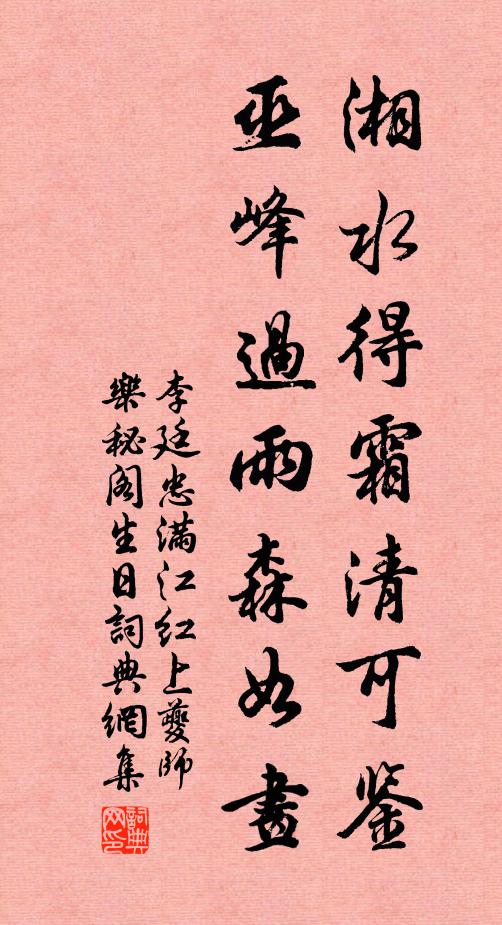 湘水得霜清可鉴
巫峰過雨森如畫
李廷忠滿江红上夔師
樂秘阁生日詞典網集
詞典网印